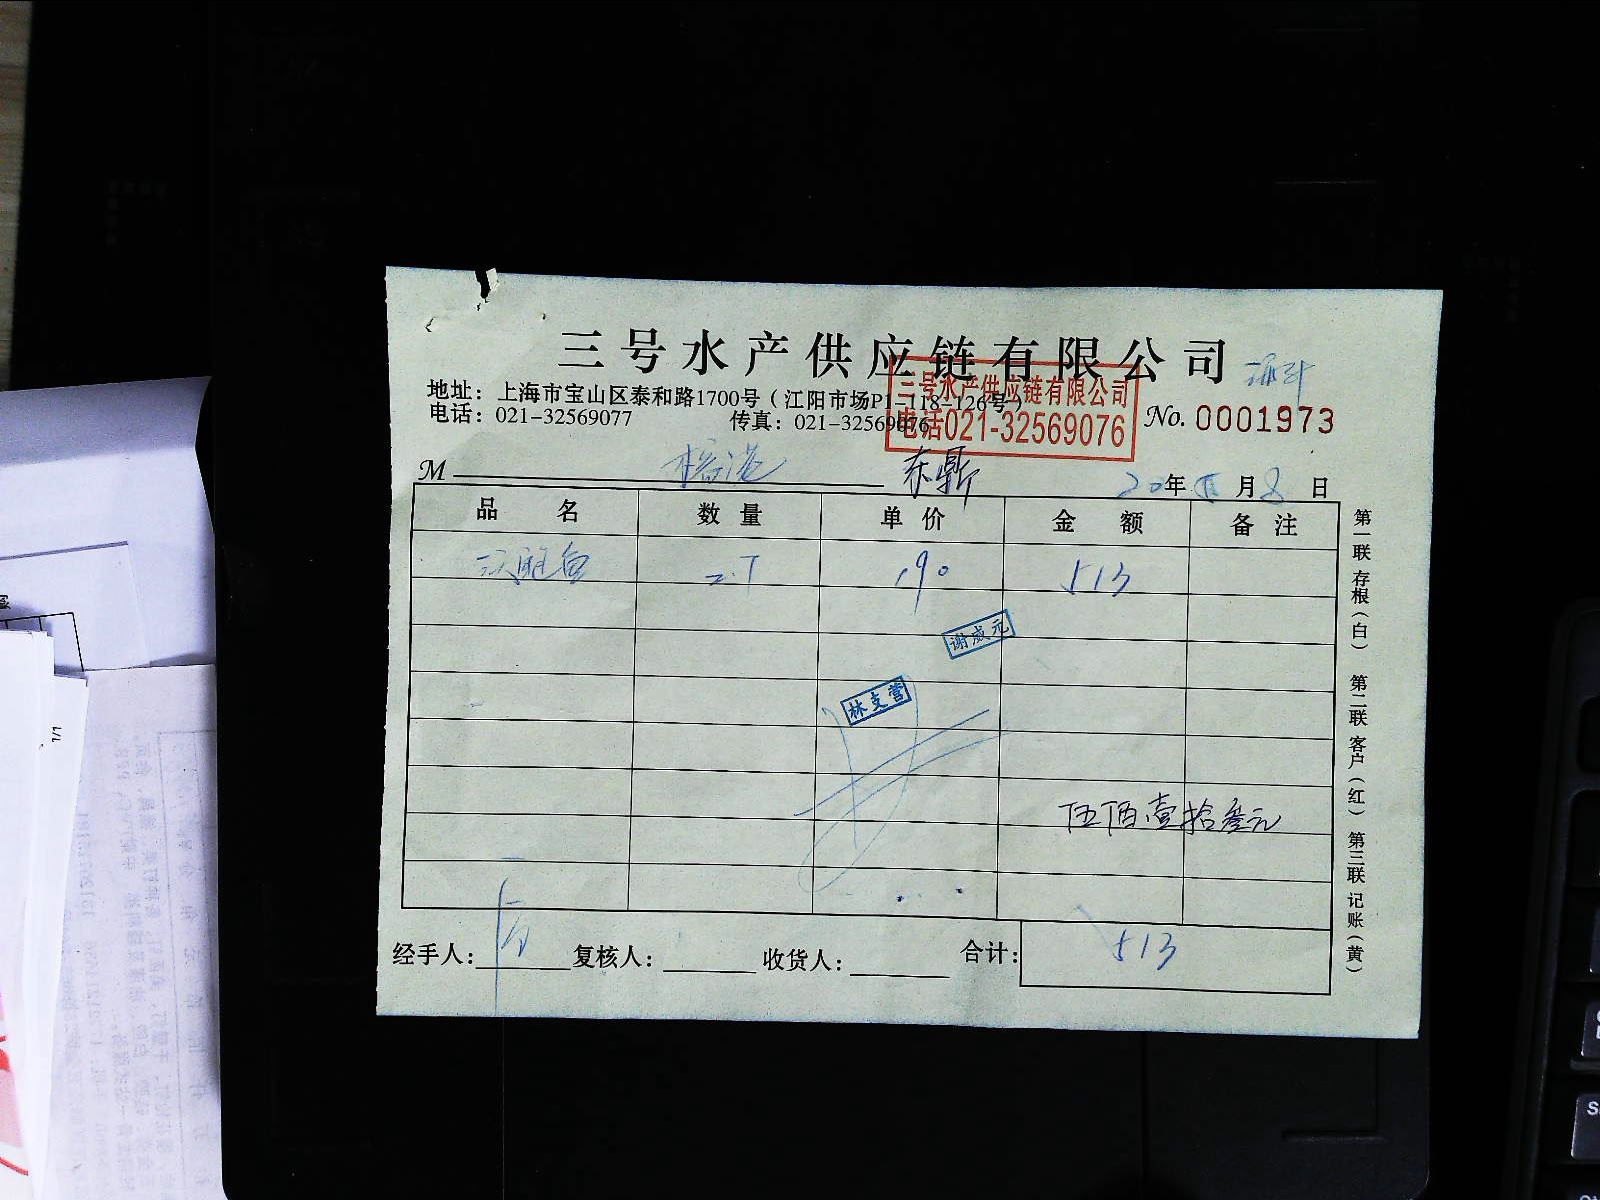 三号水产供应链有限公司
地址：上海市宝山区泰和路1700号（江阳市场P1-118-126号）
电话：021-32569077 传真：021-32569076
三号水产供应链有限公司
电话021-32569076
No. 0001973
M 榕港 东鼎 20年 月8日
品名 数量 单价 金额 备注
2.7 190 513
谢成元
林支营
伍佰壹拾叁元
经手人： 复核人： 收货人： 合计：513
第一联 存根（白） 第二联 客户（红） 第三联 记账（黄）
1/1